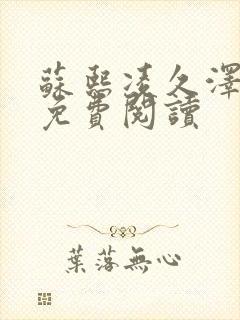 蘇熙凌久澤
免費閱讀
葉落無心